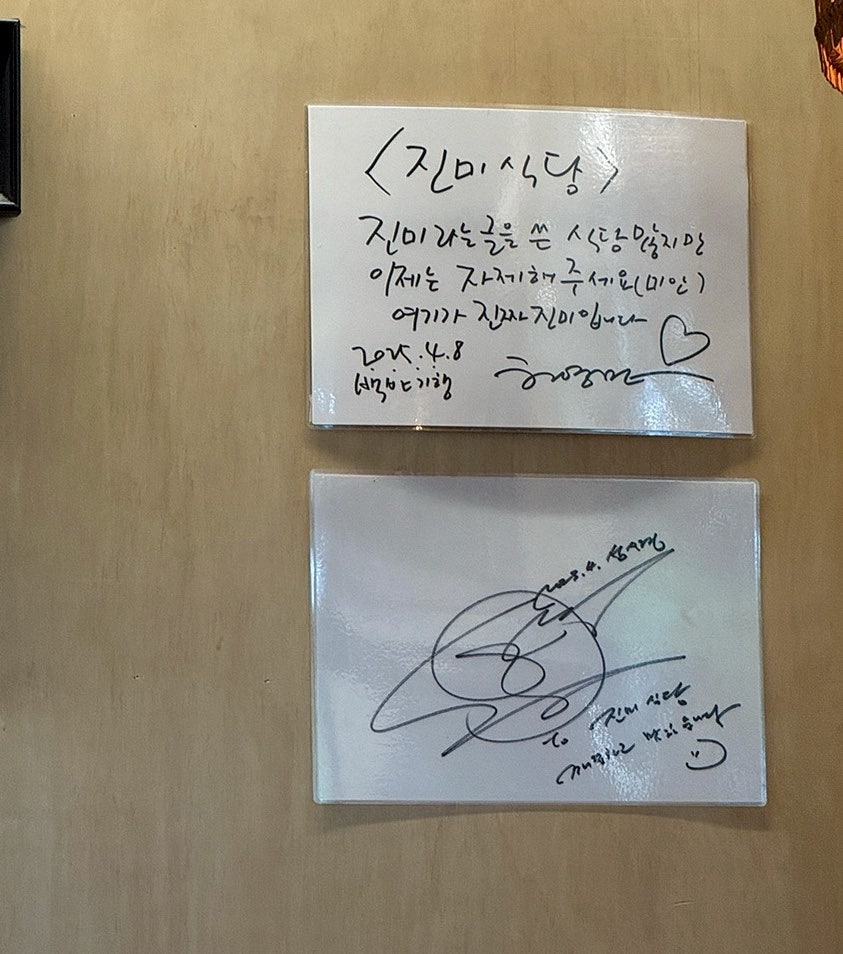 <진미식당>
진미라는 글을 쓴 식당 많지만
이제는 자제해 주세요(미안)
여기가 진짜 진미입니다 ♡
2025.4.8
백반기행 허영만
To 진미식당